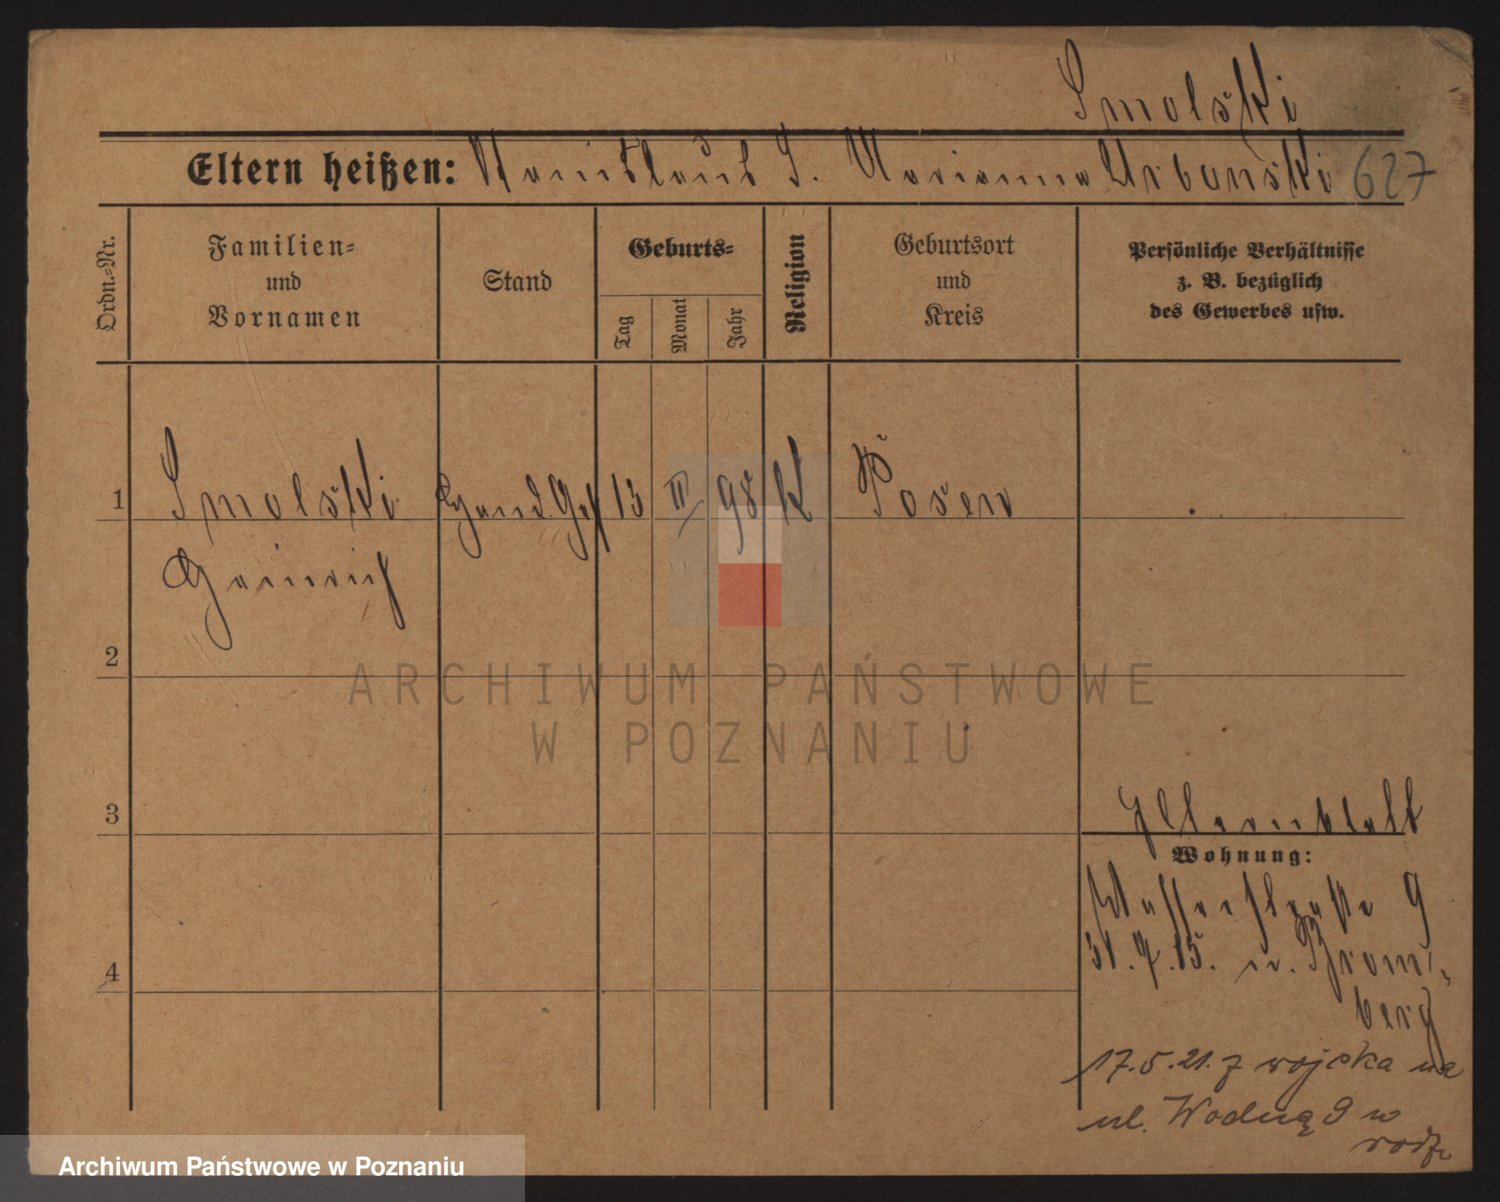 Smolski
Eltern heißen: Stanislaus S. Marianna Urbanski 627
Ordn.-Nr.
Familien-
und
Vornamen
Stand
Geburts-
Tag
Monat
Jahr
Religion
Geburtsort
und
Kreis
Persönliche Verhältnisse
z. B. bezüglich
des Gewerbes usw.
1 Smolski Hand. Geh 13 II 98 K Posen
Heinrich
2
3
4
Elternblatt
Wohnung:
Wasserstraße 9
31.7.15. n. Brom-
berg
17.5.21. z wojska na
ul. Wodną 9 w
rodz.
ARCHIWUM PAŃSTWOWE
W POZNANIU
Archiwum Państwowe w Poznaniu